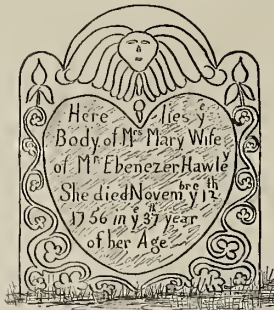 Here lies yͤ
Body of Mrs Mary Wife
of Mr Ebenezer Hawley
She died Novembre yͤ 12th
1756 in yͤ 37th year
of her Age